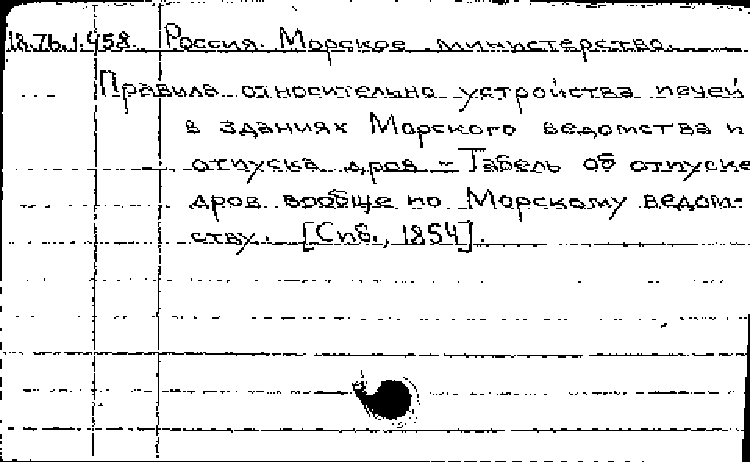 18.76.1.458. Россия. Морское министерство.
Правила относительно устройства печей
в зданиях Морского ведомства и
отпуска дров - Табель об отпуске
дров вообще по Морскому ведом-
ству. [Спб., 1854].